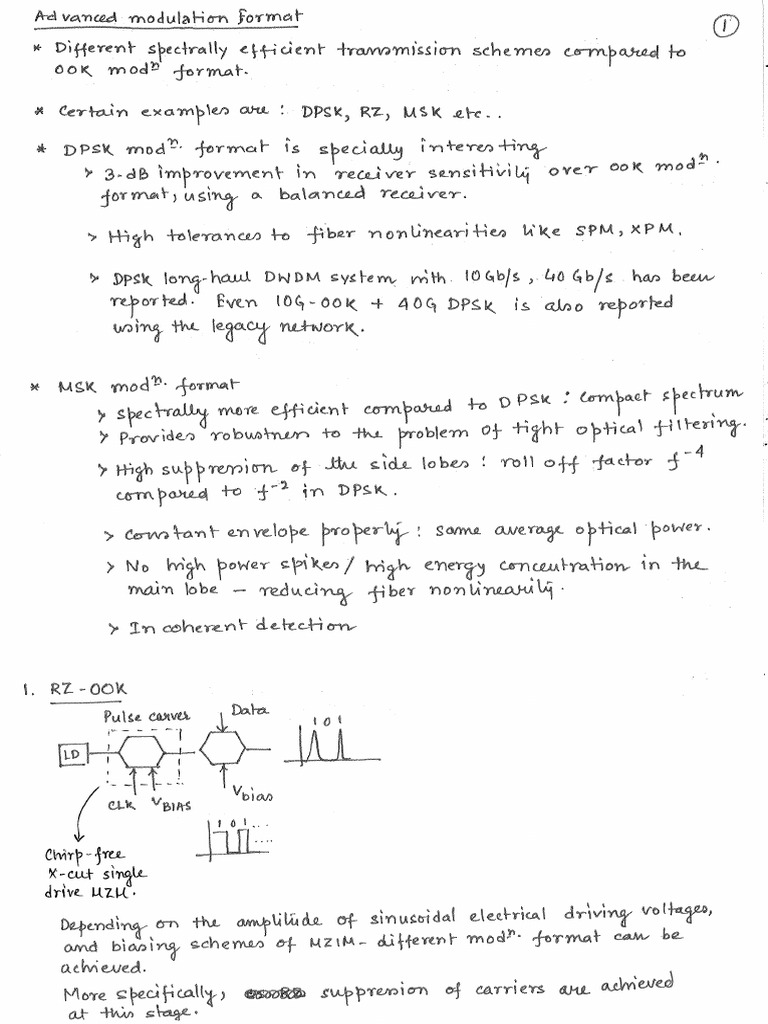 Advanced modulation format
1
* Different spectrally efficient transmission schemes compared to
OOK modⁿ format.
* Certain examples are : DPSK, RZ, MSK etc..
* DPSK modⁿ. format is specially interesting
> 3-dB improvement in receiver sensitivity over OOK modⁿ.
format, using a balanced receiver.
> High tolerances to fiber nonlinearities like SPM, XPM.
> DPSK long-haul DWDM system with 10Gb/s, 40 Gb/s has been
reported. Even 10G-OOK + 40G DPSK is also reported
using the legacy network.
* MSK modⁿ. format
> spectrally more efficient compared to DPSK : compact spectrum
> Provides robustness to the problem of tight optical filtering.
> High suppression of the side lobes : roll off factor f⁻⁴
compared to f⁻² in DPSK.
> Constant envelope property : same average optical power.
> No high power spikes / high energy concentration in the
main lobe – reducing fiber nonlinearity.
> Incoherent detection
1. RZ-OOK
Pulse carver
Data
1 0 1
LD
CLK
VBIAS
Vbias
1 0 1 ....
....
Chirp-free
X-cut single
drive MZM.
Depending on the amplitude of sinusoidal electrical driving voltages,
and biasing schemes of MZIM – different modⁿ. format can be
achieved.
More specifically, suppression of carriers are achieved
at this stage.